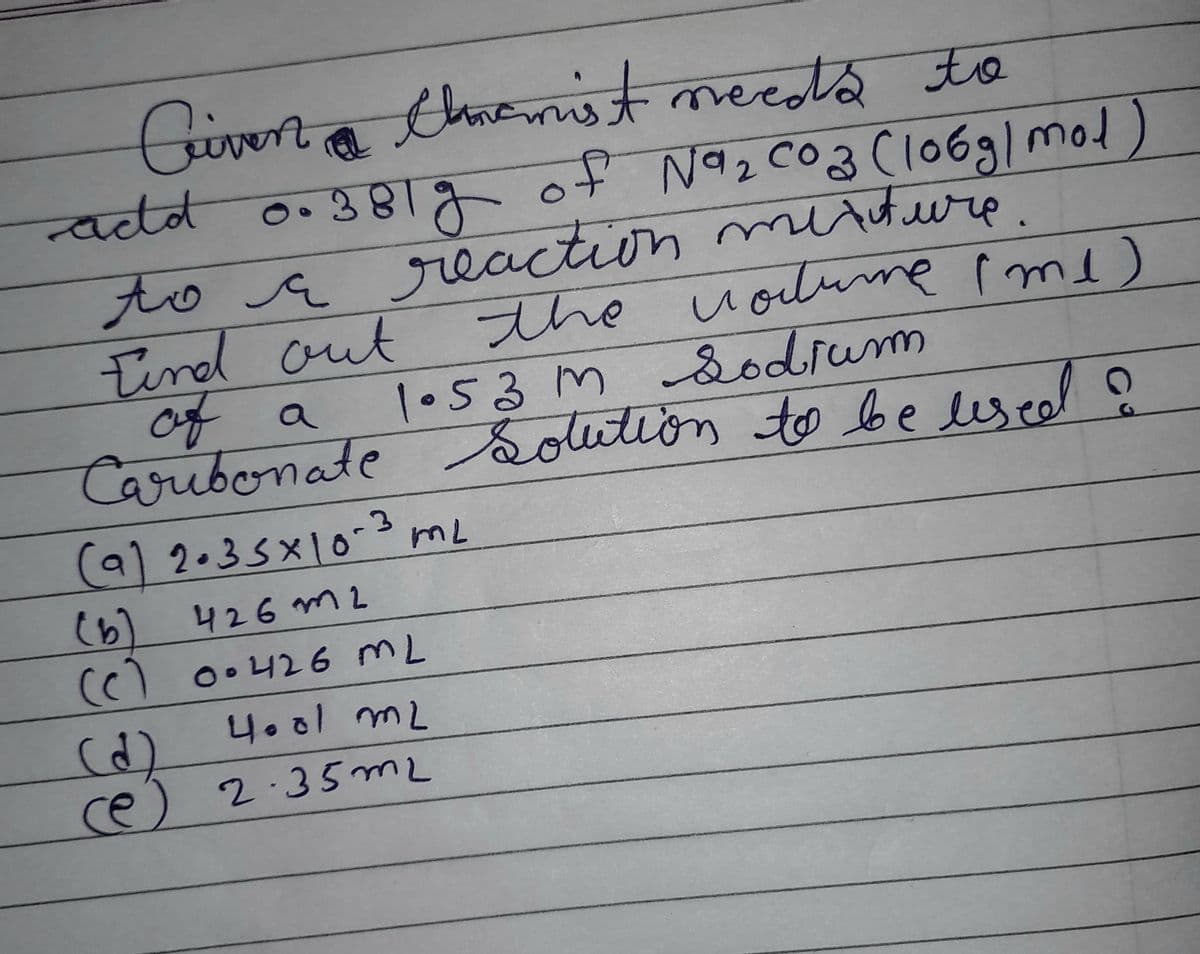 Given a Chemist needs to
add 0.381g of Na2CO3 (106g/mol)
to a reaction mixture.
Find out the volume (ml)
of a 1.53 M Sodium
Carbonate Solution to be used ?
(a) 2.35×10-3 mL
(b) 426 mL
(c) 0.426 mL
(d) 4.01 mL
(e) 2.35mL